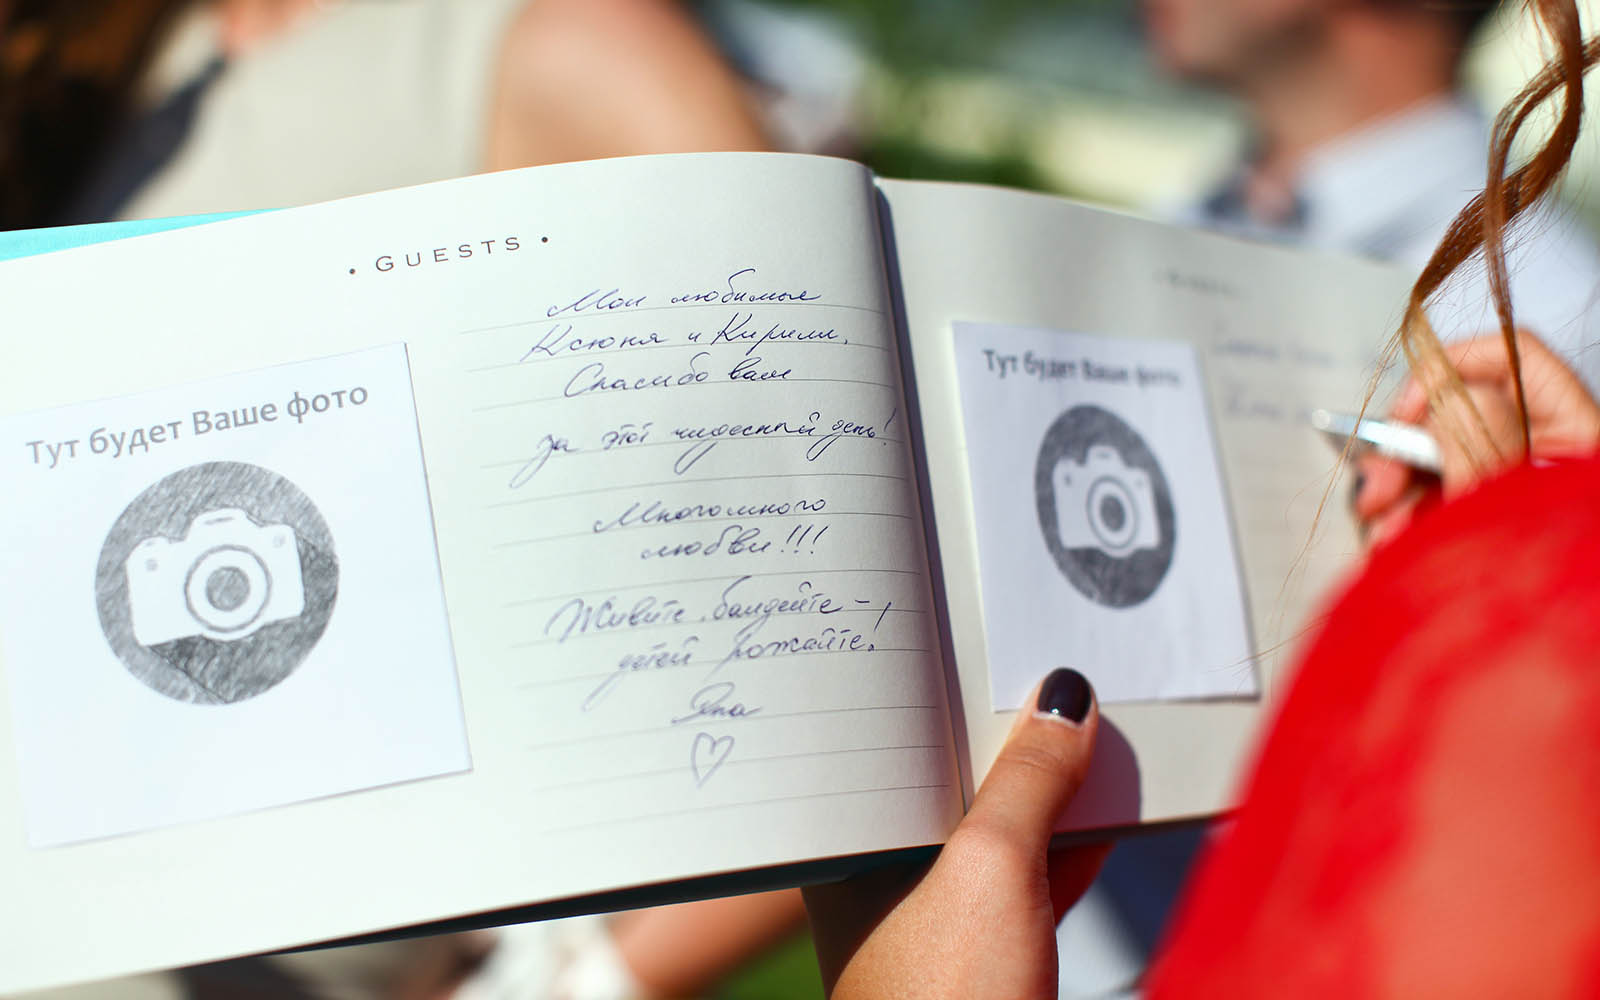 • GUESTS •
Тут будет Ваше фото
Мои любимые
Ксюня и Кирилл,
Спасибо вам
за этот чудесный день!
Многомного
любви!!!
Живите, балдейте –
детей рожайте!
Яна
Тут будет Ваше фото